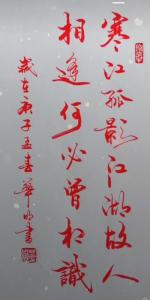 寒江孤影江湖故人
相逢何必曾相識
歲在庚子孟春華明書